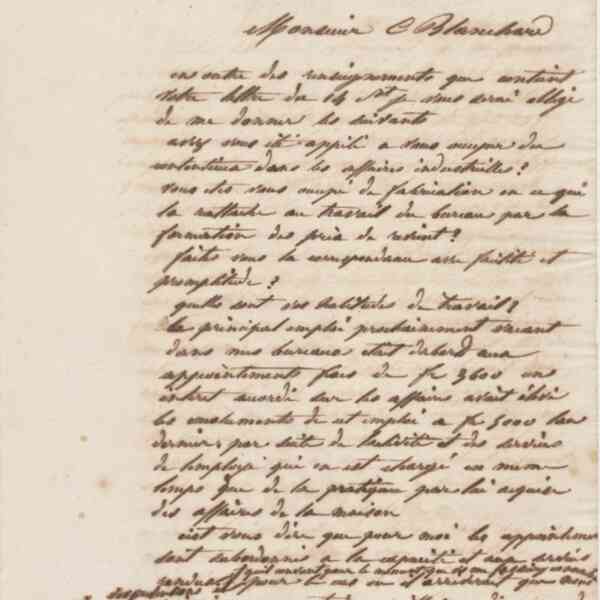 Monsieur C Blanchard
en outre des renseignements que contient
votre lettre du 14 Ct je vous serai obligé
de me donner les suivants
avez vous été appelé a vous occuper du
contentieux dans les affaires industrielles?
vous etes vous occupé de fabrication en ce qui
la rattache au travail du bureau par la
formation des prix de revient?
faites vous la correspondance avec facilité et
promptitude?
quelles sont vos habitudes de travail?
Le principal emploi prochainement vacant
dans mes bureaux etait dabord aux
appointements fixes de fr 3600 un
intéret accordé sur les affaires avait élevé
les emoluments de cet emploi a fr 5000 lan
dernier, par suite de lactivité et des services
de lemployé qui en est chargé en meme
temps que de la pratique par lui acquise
des affaires de la maison
cest vous dire que pour moi les appointemens
sont subordonnés a la capacité et aux services
rendus pour le cas ou il arriverait que nous